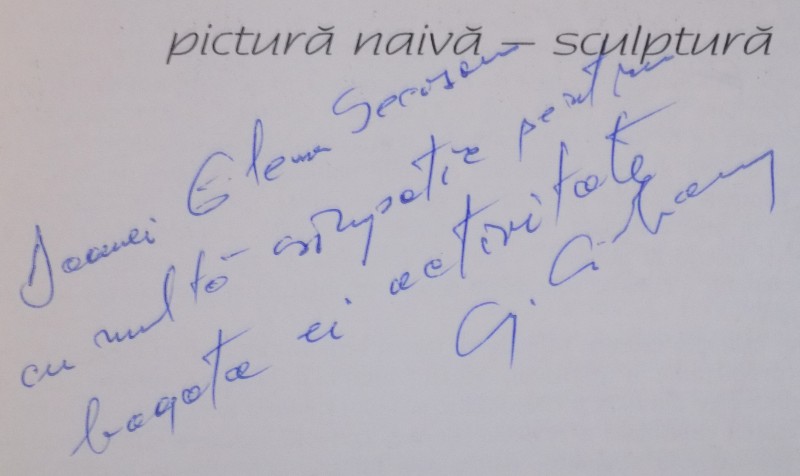 pictură naivă – sculptură
Doamnei Elena Secoșan
cu multă simpatie pentru
bogata ei activitate
G.